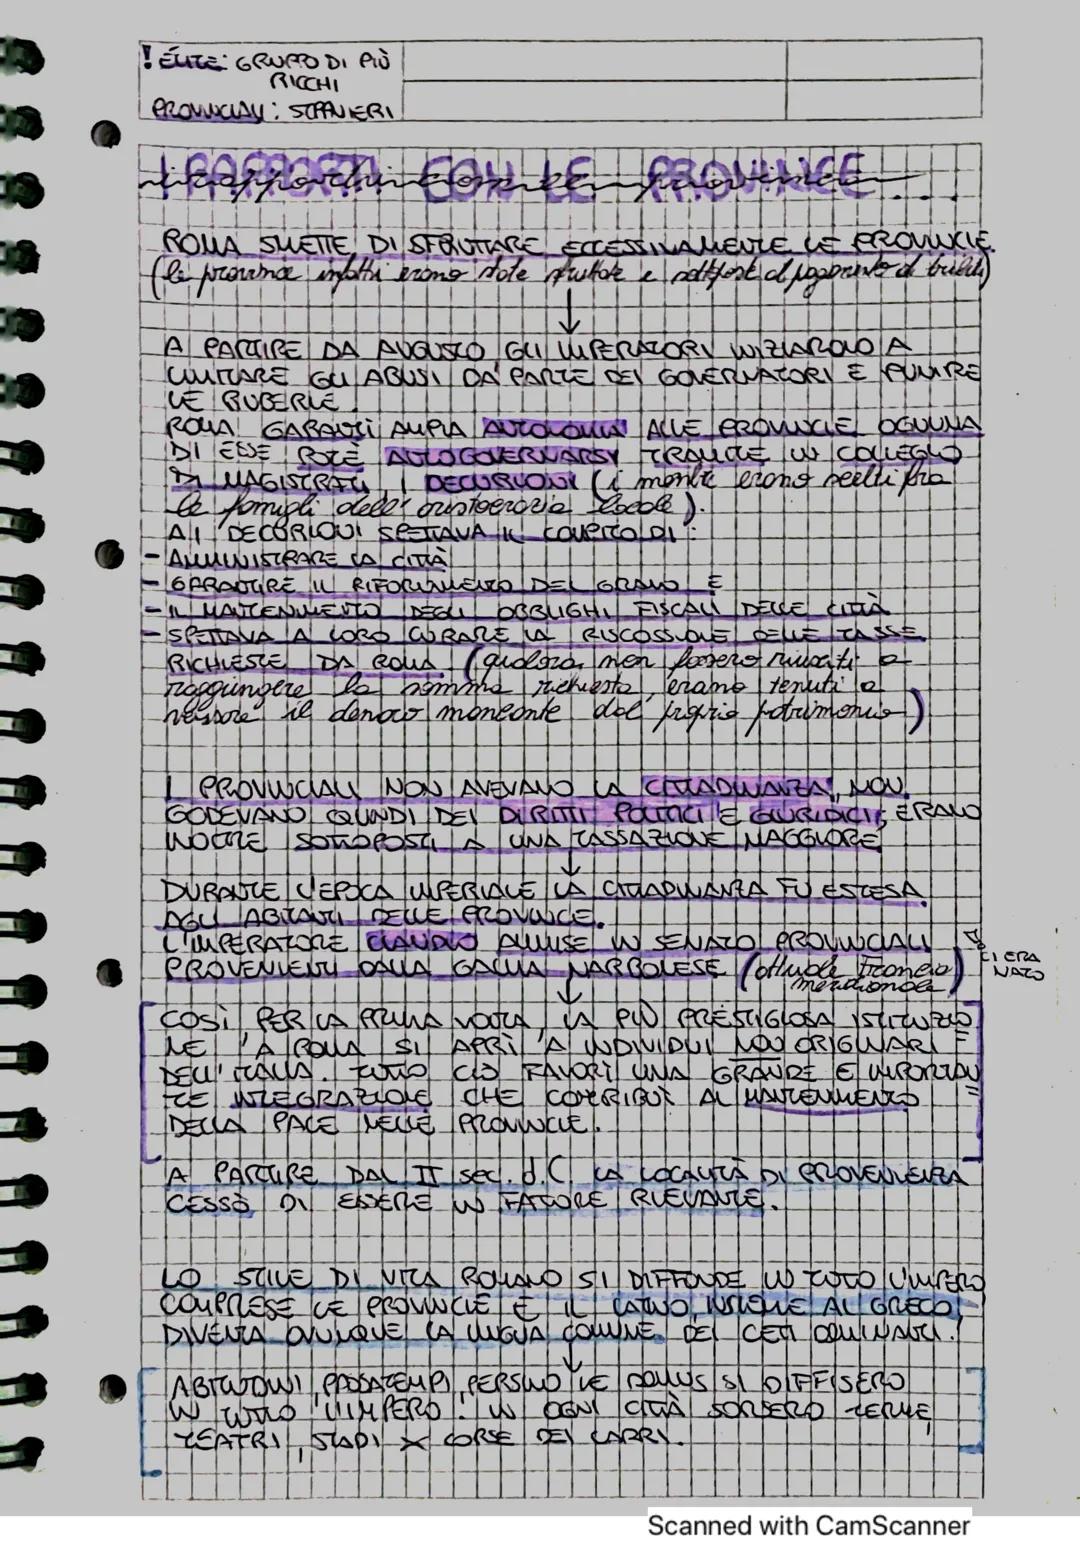 ! ÉLITE: GRUPPO DI PIÙ
RICCHI
PROVINCIALI: STRANIERI
I RAPPORTI CON LE PROVINCE
ROMA SMETTE DI SFRUTTARE ECCESSIVAMENTE LE PROVINCIE.
(le province infatti erano state sfruttate e sottoposte al pagamento di tributi)
↓
A PARTIRE DA AUGUSTO, GLI IMPERATORI INIZIAROLO A
LIMITARE GLI ABUSI DA PARTE DEI GOVERNATORI E PUNIRE
LE RUBERIE.
ROMA GARANTÌ AMPIA AUTONOMIA ALLE PROVINCIE OGNUNA
DI ESSE POTÈ AUTOGOVERNARSI TRAMITE UN COLLEGIO
DI MAGISTRATI, I DECURIONI (i membri erano scelti fra
le famigli dell'aristocrazia locale).
AI DECURIONI SPETTAVA IL COMPITO DI:
- AMMINISTRARE LA CITTÀ
- GARANTIRE IL RIFORNIMENTO DEL GRANO E
- IL MANTENIMENTO DEGLI OBBLIGHI FISCALI DELLE CITTÀ
- SPETTAVA A LORO CURARE LA RISCOSSIONE DELLE TASSE
RICHIESTE DA ROMA. (qualora non fossero riusciti a
raggiungere la somma richiesta, erano tenuti a
versare il denaro mancante dal proprio patrimonio)
I PROVINCIALI NON AVEVANO LA CITTADINANZA, NON
GODEVANO QUINDI DEI DIRITTI POLITICI E GIURIDICI; ERANO
INOLTRE SOTTOPOSTI A UNA TASSAZIONE MAGGIORE
↓
DURANTE L'EPOCA IMPERIALE LA CITTADINANZA FU ESTESA
AGLI ABITANTI DELLE PROVINCE.
L'IMPERATORE CLAUDIO AMMISE IN SENATO PROVINCIALI
PROVENIENTI DALLA GALLIA NARBONESE (attuale Francia
meridionale)
CI ERA
NATO
↓
COSÌ, PER LA PRIMA VOLTA, LA PIÙ PRESTIGIOSA ISTITUZIO
NE A ROMA SI APRÌ A INDIVIDUI NON ORIGINARI =
DELL'ITALIA. TUTTO CIÒ FAVORÌ UNA GRANDE E IMPORTAN
TE INTEGRAZIONE CHE CONTRIBUÌ AL MANTENIMENTO =
DELLA PACE NELLE PROVINCIE.
A PARTIRE DAL II sec. d.C. LA LOCALITÀ DI PROVENIENZA
CESSÒ DI ESSERE UN FATTORE RILEVANTE.
LO STILE DI VITA ROMANO SI DIFFONDE IN TUTO L'IMPERO
COMPRESE LE PROVINCIE E IL LATINO, INSIEME AL GRECO,
DIVENTA OVUNQUE LA LINGUA COMUNE DEI CETI DOMINANTI.
↓
ABITUDINI, PASSATEMPI, PERSINO LE DOMUS SI DIFFISERO
IN TUTTO L'IMPERO. IN OGNI CITTÀ SORSERO TERME,
TEATRI, STADI X CORSE DEI CARRI.
Scanned with CamScanner